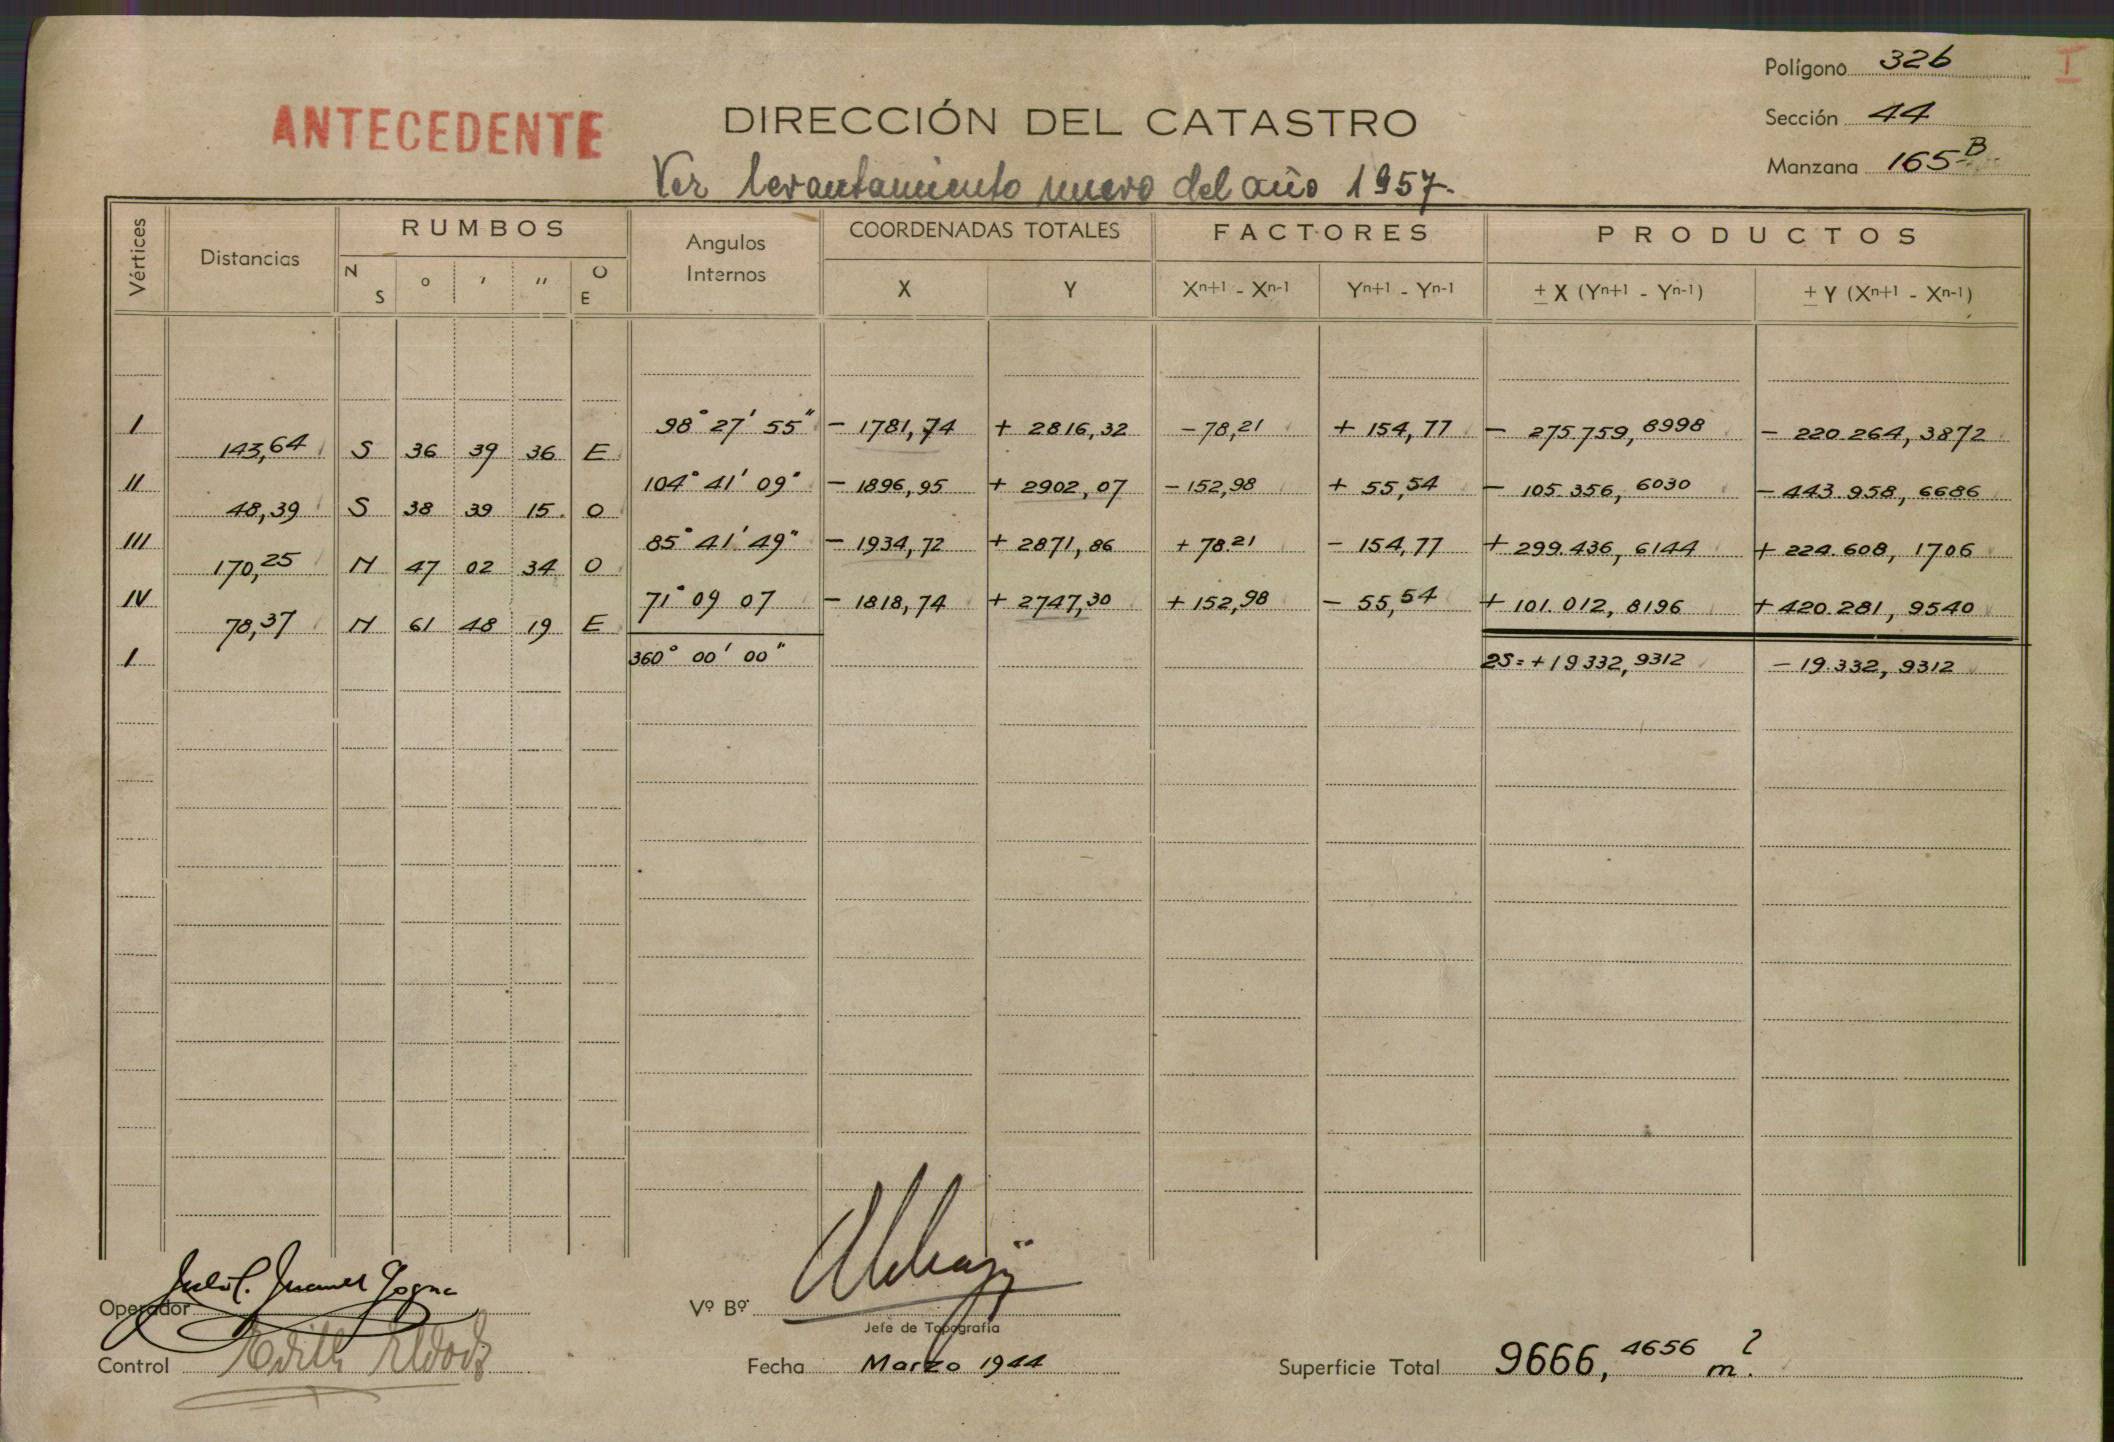 Polígono 326
I
ANTECEDENTE
DIRECCIÓN DEL CATASTRO
Sección 44
Ver levantamiento nuevo del año 1957.
Manzana 165-B
Vértices
Distancias
RUMBOS
N S
o
'
"
O E
Angulos Internos
COORDENADAS TOTALES
X
Y
FACTORES
Xn+1 - Xn-1
Yn+1 - Yn-1
PRODUCTOS
± X (Yn+1 - Yn-1)
± Y (Xn+1 - Xn-1)
I 98° 27' 55" - 1781,74 + 2816,32 - 78,21 + 154,77 - 275.759,8998 - 220.264,3872
143,64 S 36 39 36 E
II 104° 41' 09" - 1896,95 + 2902,07 - 152,98 + 55,54 - 105.356,6030 - 443.958,6686
48,39 S 38 39 15 O
III 85° 41' 49" - 1934,72 + 2871,86 + 78.21 - 154,77 + 299.436,6144 + 224.608,1706
170,25 N 47 02 34 O
IV 71° 09 07 - 1818,74 + 2747,30 + 152,98 - 55,54 + 101.012,8196 + 420.281,9540
78,37 N 61 48 19 E
I 360° 00' 00" 2S= + 19332,9312 - 19.332,9312
Operador
Vº Bº
Jefe de Topografía
Control
Fecha Marzo 1944
Superficie Total 9666,4656 m2.